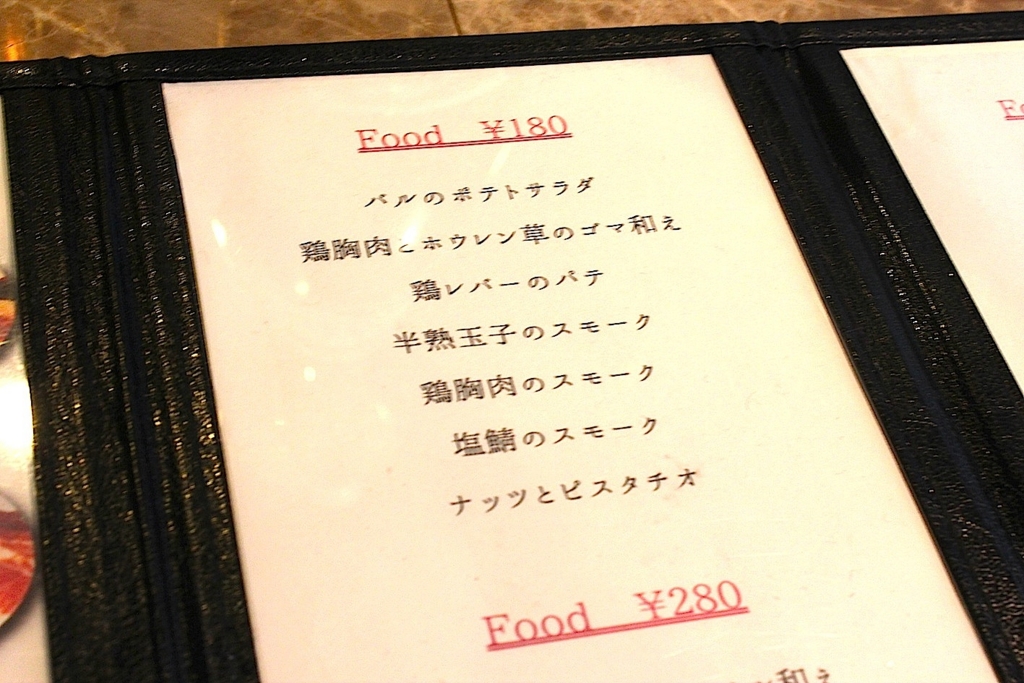 Food ¥180
バルのポテトサラダ
鶏胸肉とホウレン草のゴマ和え
鶏レバーのパテ
半熟玉子のスモーク
鶏胸肉のスモーク
塩鯖のスモーク
ナッツとピスタチオ
Food ¥280
和え